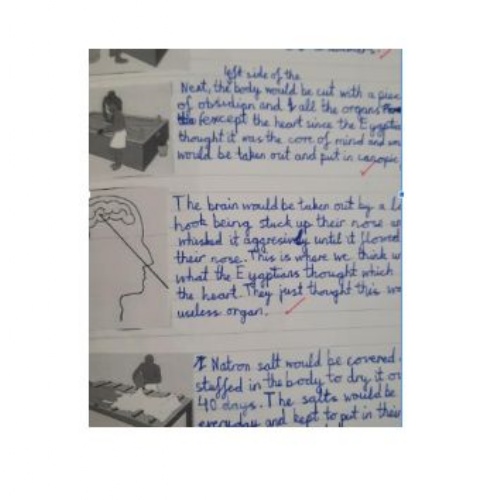 left side of the
Next, the body would be cut with a piece
of obsidian and all the organs
except the heart since the Eygptia
thought it was the core of mind and
would be taken out and put in canopic
The brain would be taken out by a
hook being stuck up their nose
whisked it aggresively until it flowed
their nose. This is where we think
what the Eygptians thought which
the heart. They just thought this
useless organ.
Natron salt would be covered
stuffed in the body to dry it
40 days. The salts would be
everyday and kept to put in their